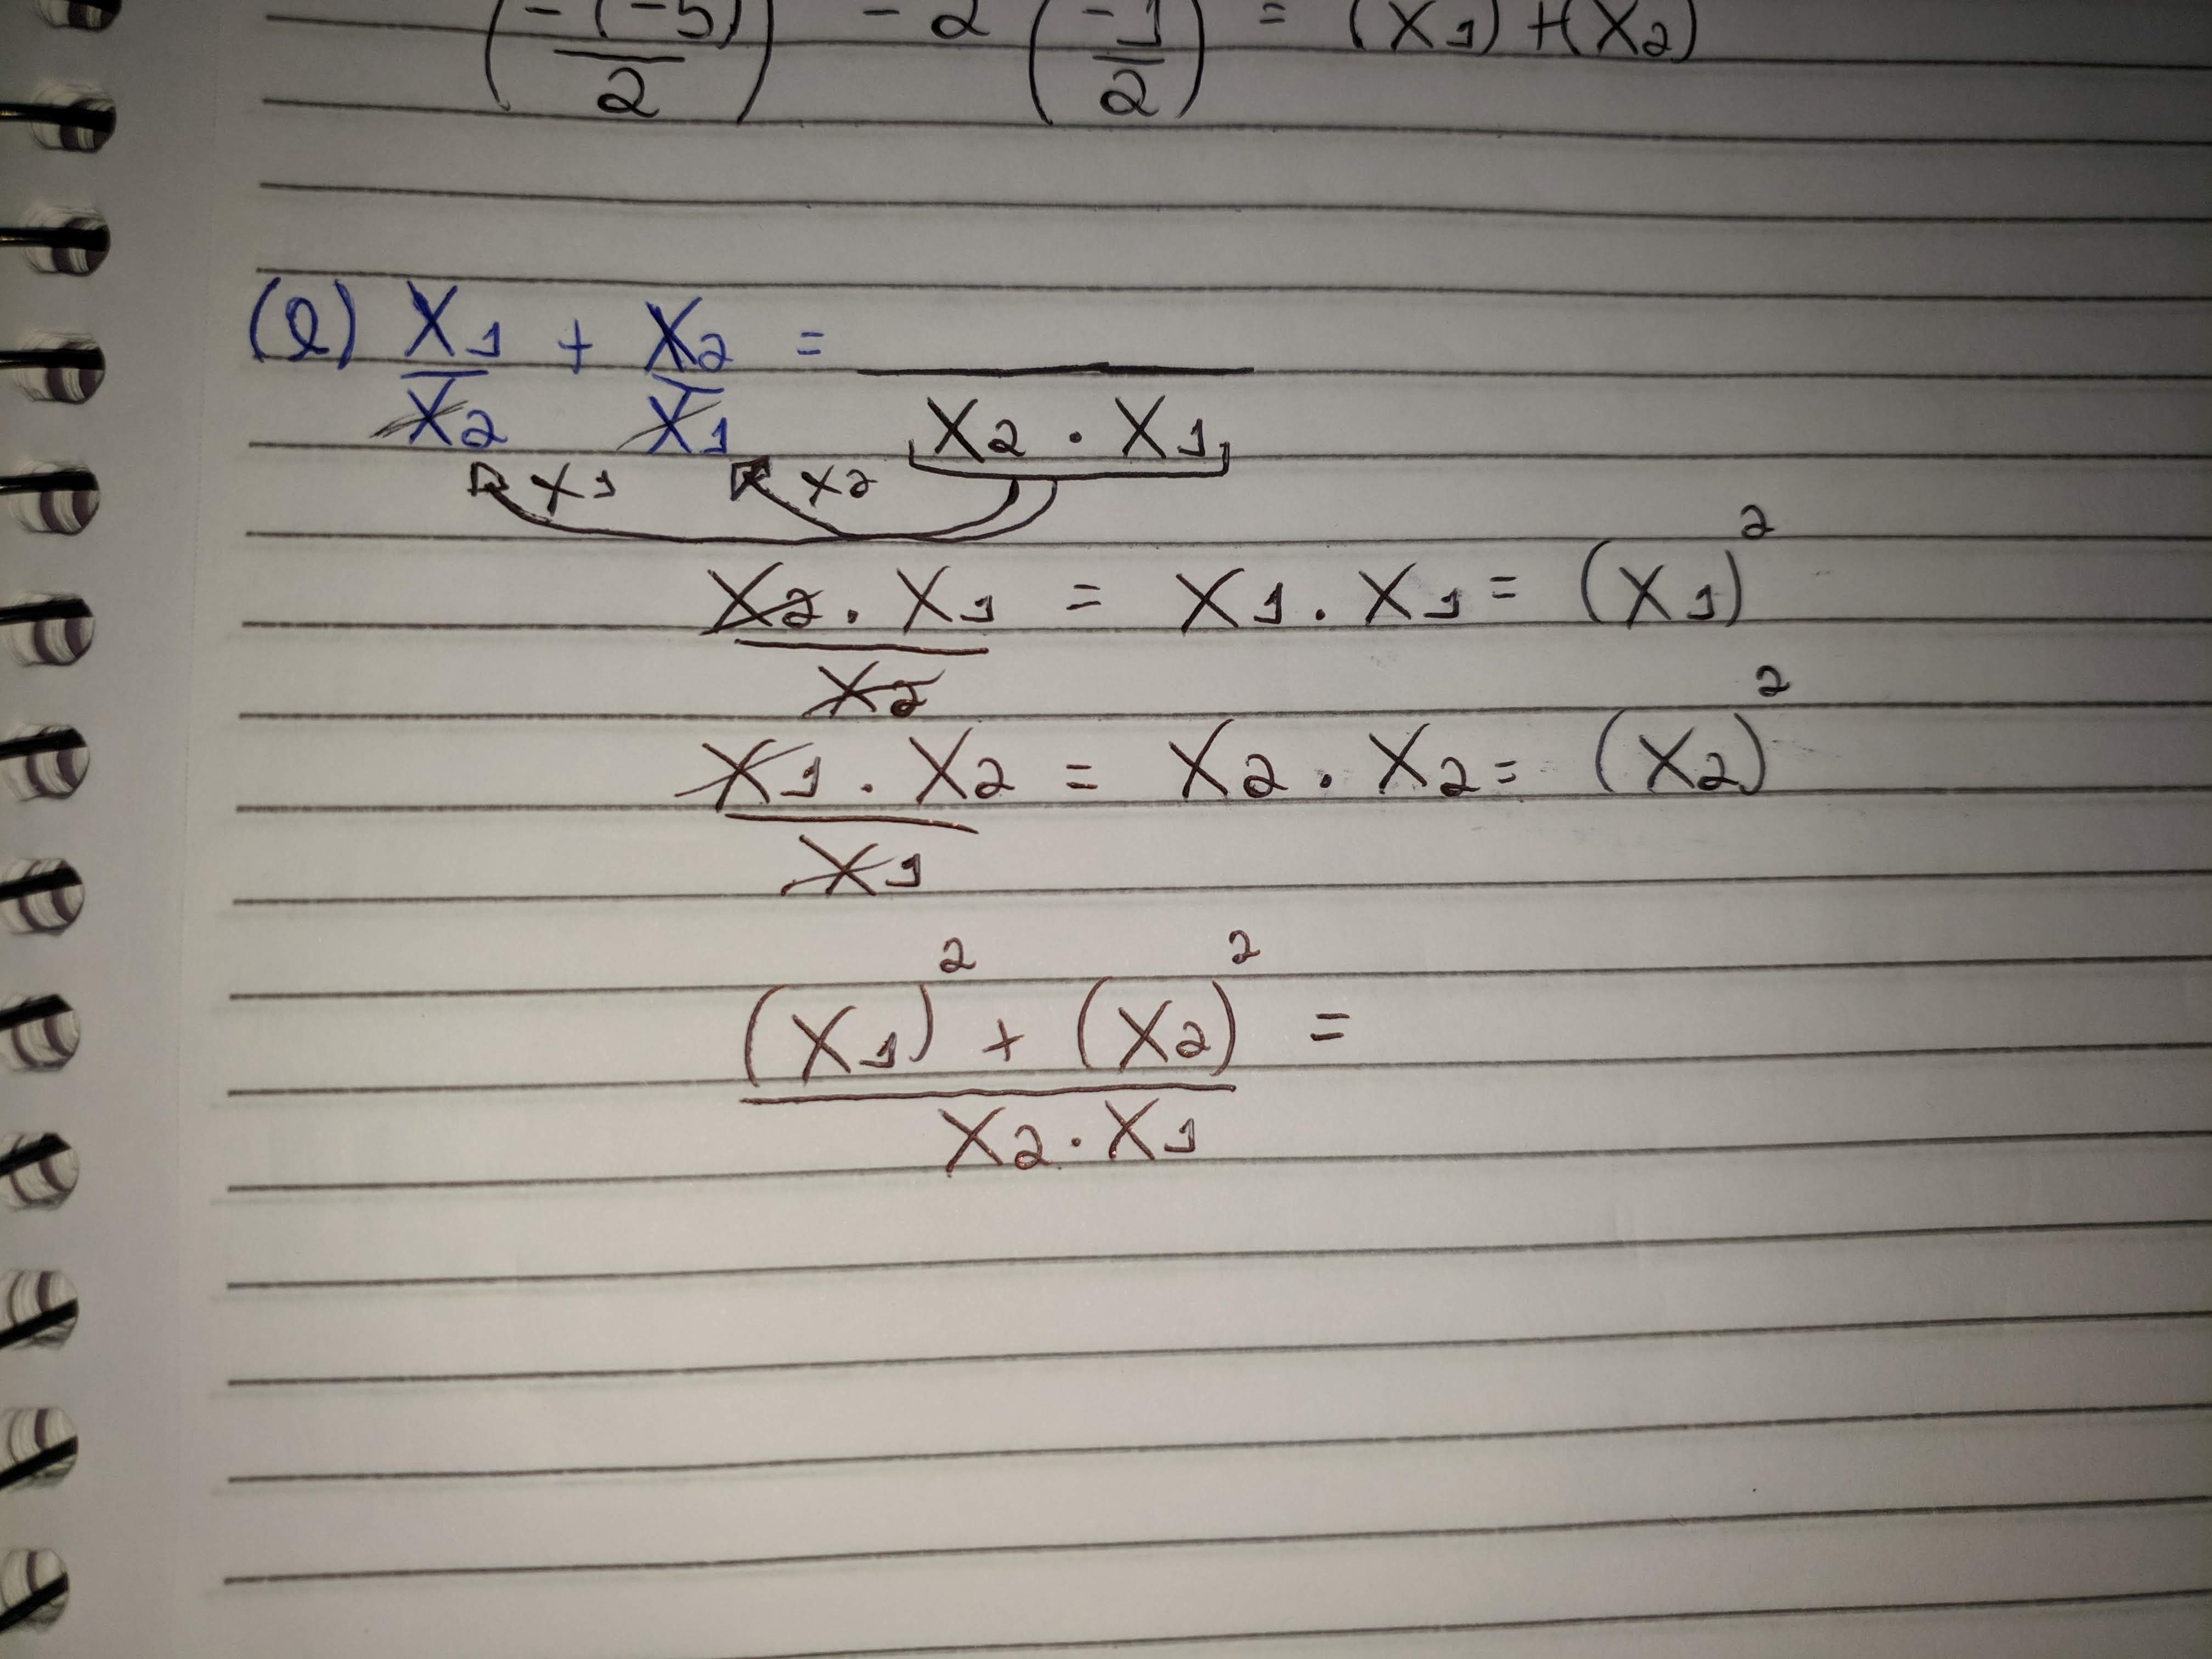 (-(-5)/2) - 2 (-1/2) = (X1) + (X2)
(e) X1/X2 + X2/X1 = ____/X2 . X1
X1 X2
X2 . X1/X2 = X1 . X1 = (X1)²
X1 . X2/X1 = X2 . X2 = (X2)²
(X1)² + (X2)²/X2 . X1 =